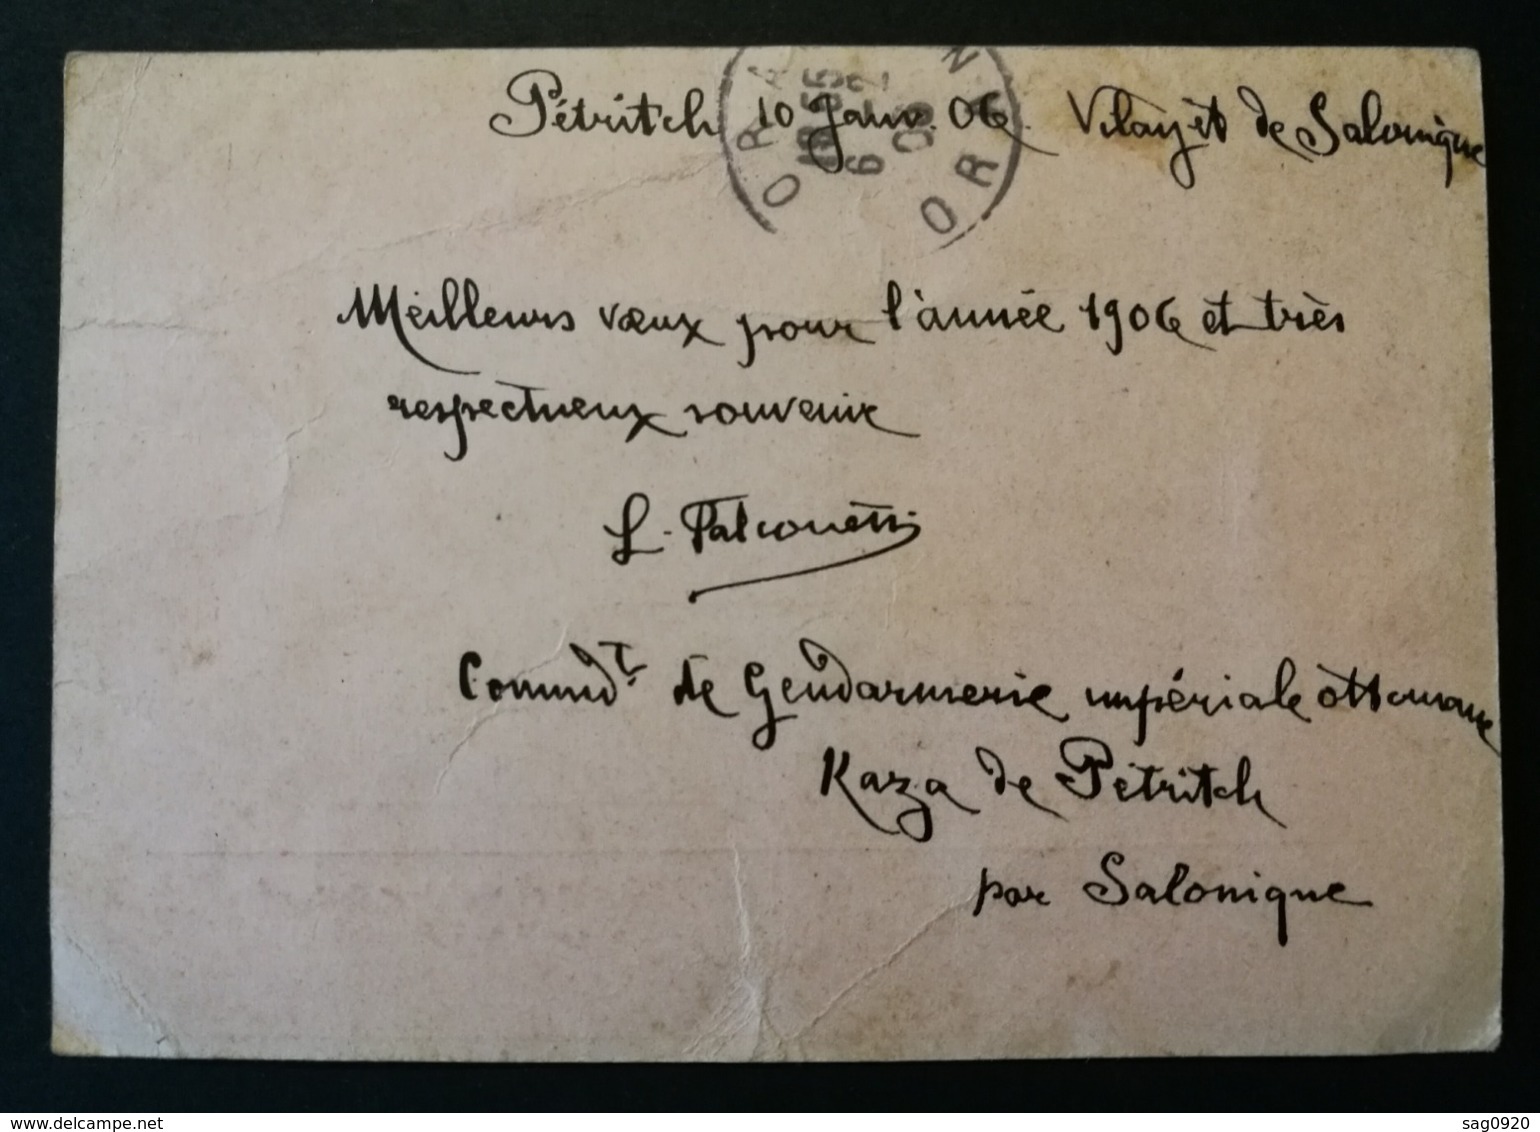 Pétritch 10 Janv. 06. Vilayet de Salonique
ORAN
ORAN
Meilleurs vœux pour l'année 1906 et très
respectueux souvenir
L. Falconetti
Commdt. de Gendarmerie impériale ottomane
Kaza de Pétritch
par Salonique
www.delcampe.net
sag0920